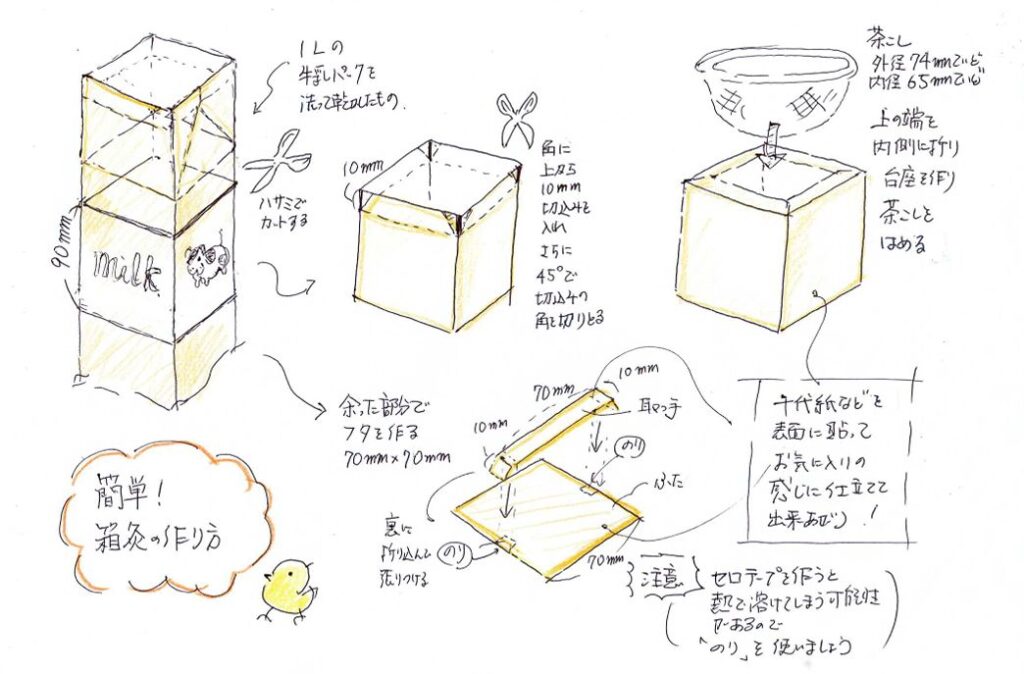 簡単!
箱灸の作り方
1Lの
牛乳パックを
洗って乾かしたもの
ハサミで
カットする
90mm
milk
10mm
角に
上から
10mm
切込みを
入れ
さらに
45°で
切込みの
角を切りとる
茶こし
外径74mmていど
内径65mmていど
上の端を
内側に折り
台座を作り
茶こしを
はめる
余った部分で
フタを作る
70mm×70mm
10mm
70mm
10mm
取っ手
のり
ふた
裏に
折り込んで
張りつける
のり
70mm
千代紙などを
表面に貼って
お気に入りの
感じに仕立てて
出来あがり!
注意
セロテープを作うと
熱で溶けてしまう可能性
があるので
「のり」を使いましょう